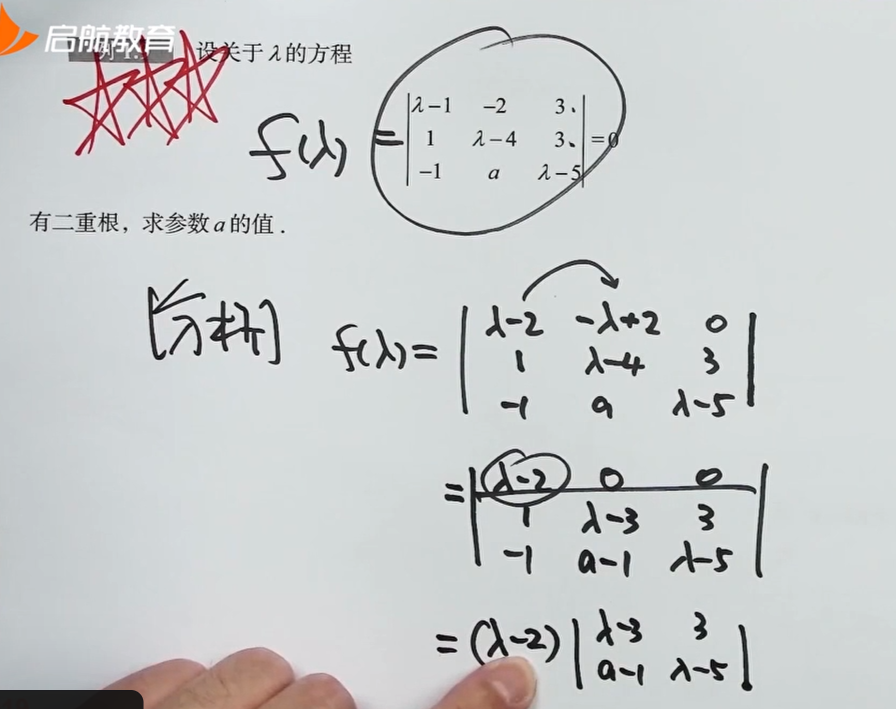 启航教育
例 1. 设关于 λ 的方程
f(λ) = | λ−1 −2 3 |
| 1 λ−4 3 | = 0
| −1 a λ−5 |
有二重根，求参数 a 的值．
[分析] f(λ) = | λ−2 −λ+2 0 |
| 1 λ−4 3 |
| −1 a λ−5 |
= | λ−2 0 0 |
| 1 λ−3 3 |
| −1 a−1 λ−5 |
= (λ−2) | λ−3 3 |
| a−1 λ−5 |